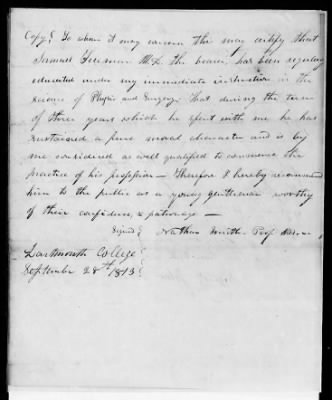 Copy} To whom it may concern this may certify that
Samuel Freeman M.D. the bearer, has been regularly
educated under my immediate instruction in the
science of Physic and Surgery. That during the term
of three years which he spent with me he has
sustained a pure moral character and is by
me considered as well qualified to commence the
practice of his profession — therefore I hereby recommend
him to the public as a young gentleman worthy
of their confidence & patronage —
Signed} Nathan Smith Prof
Dartmouth College}
September 28th 1813}